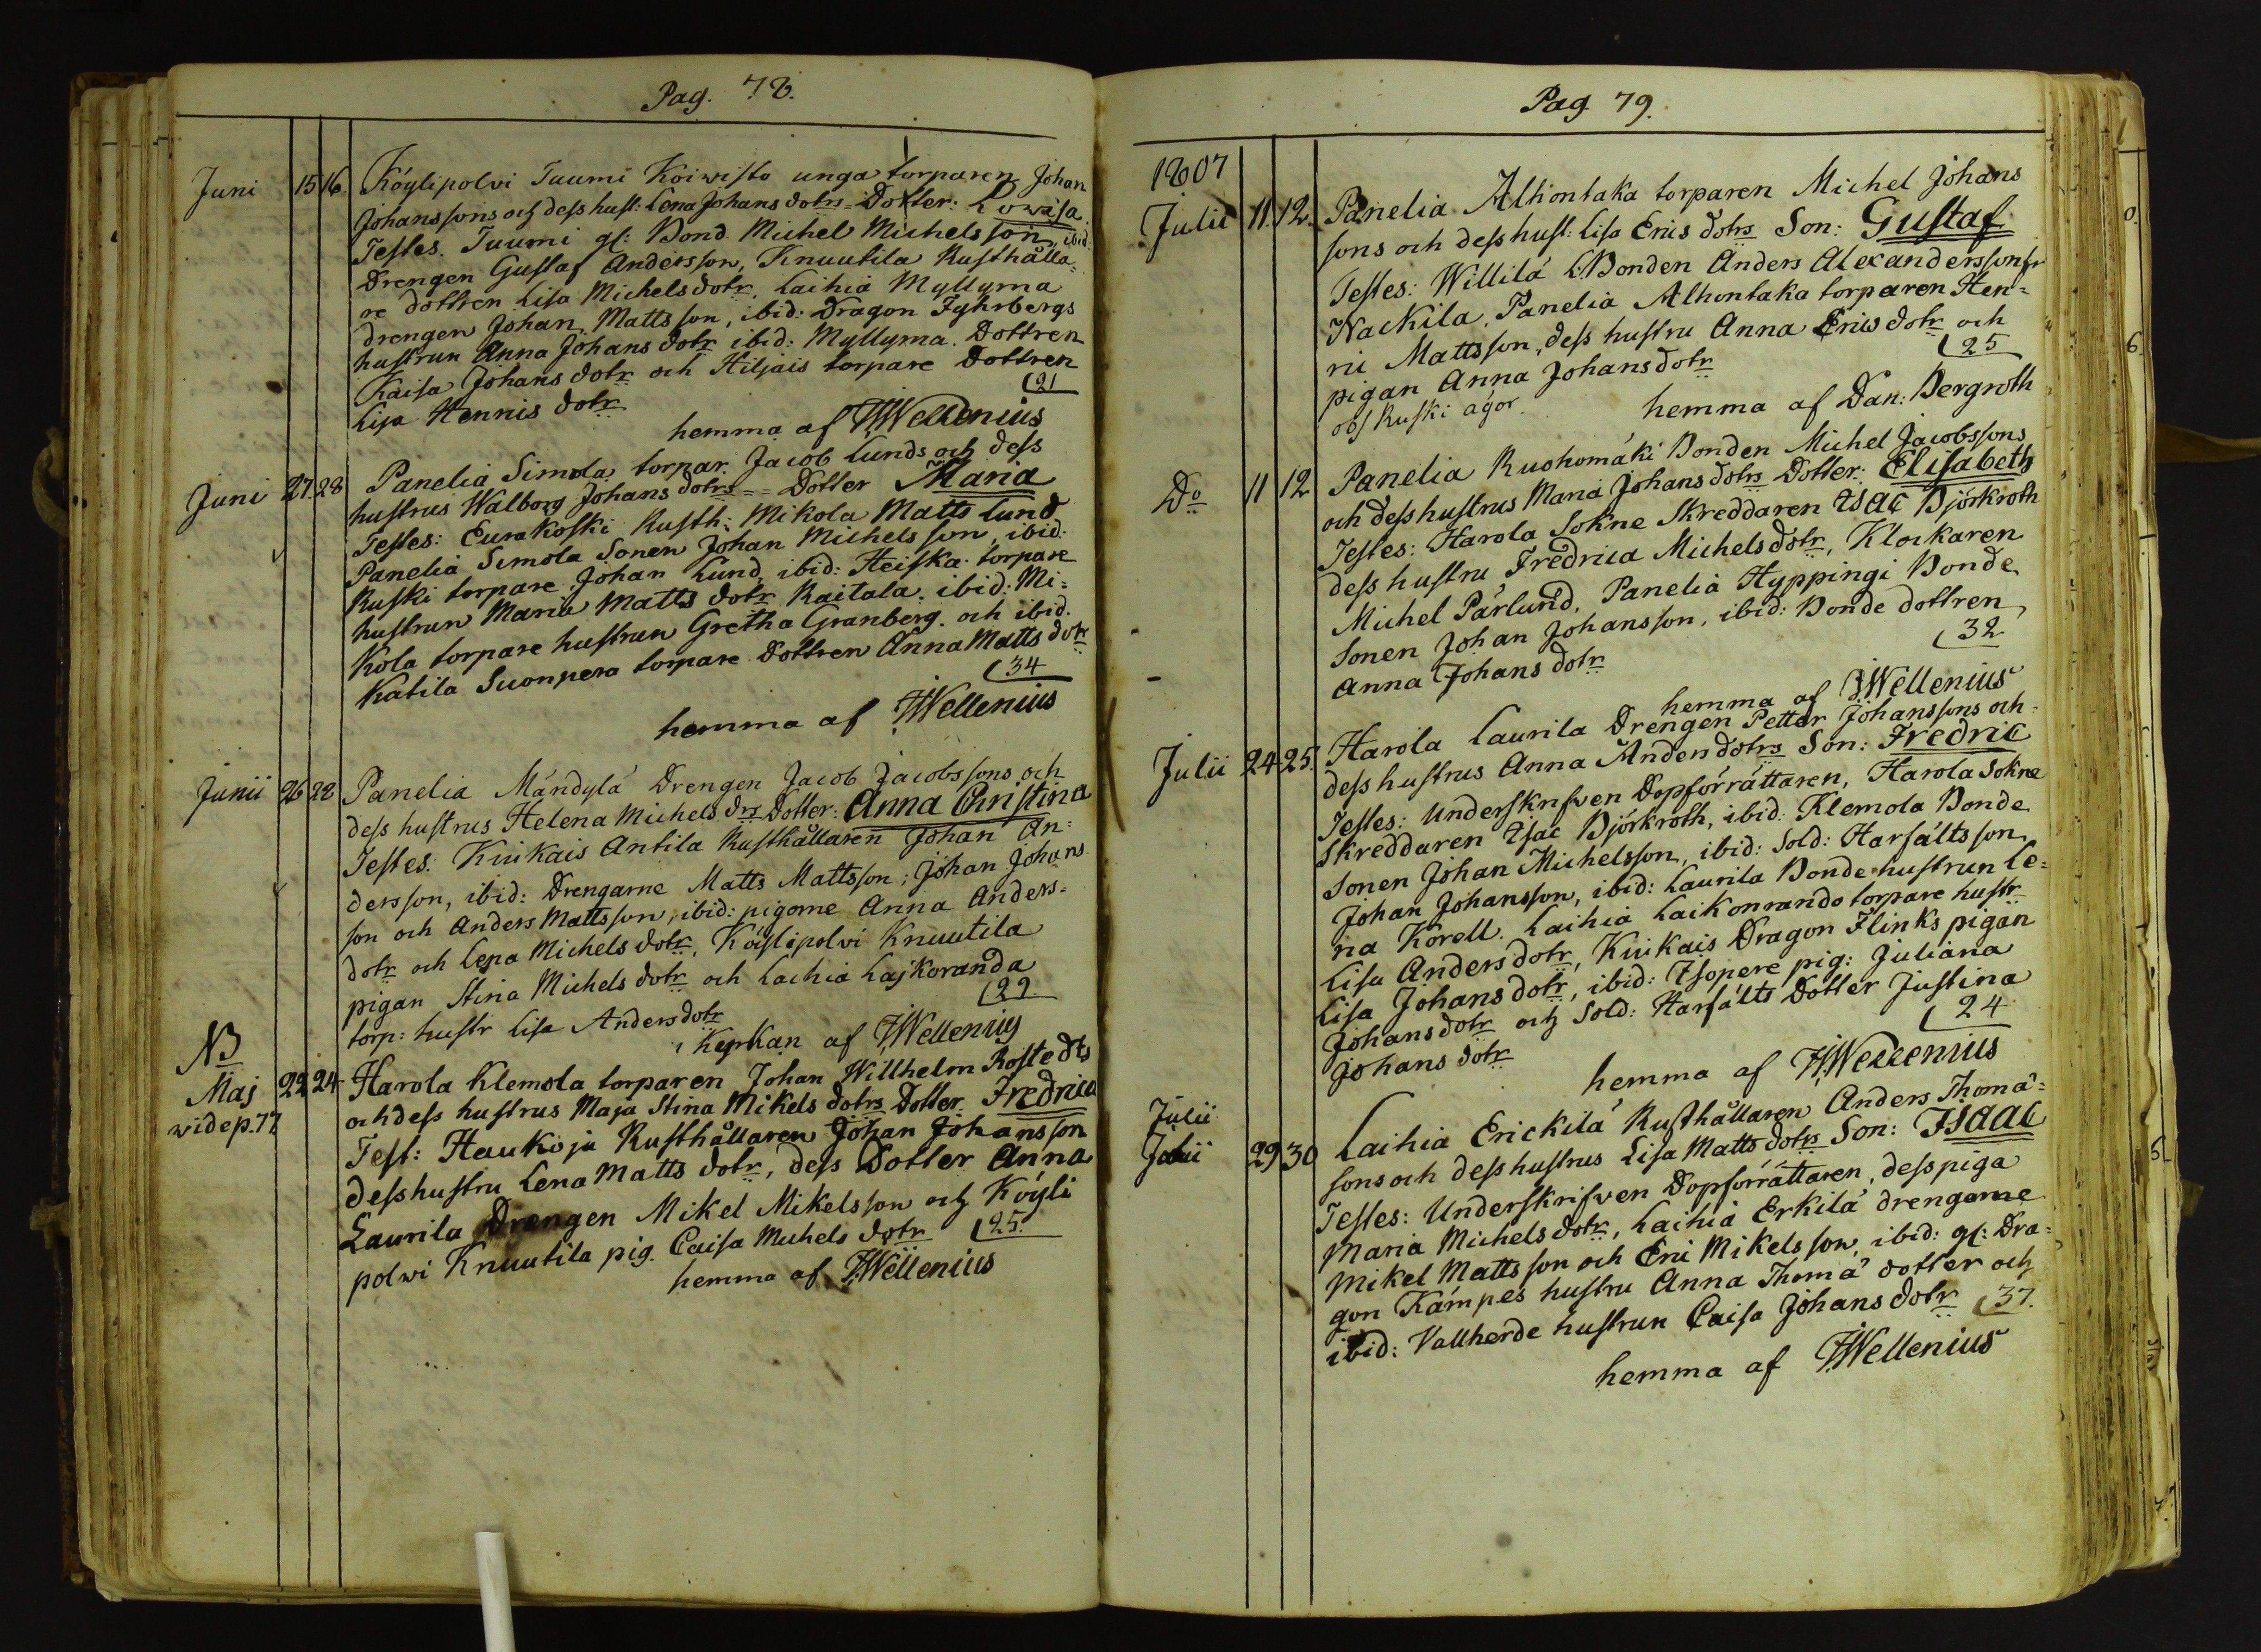 Pag. 78.
Juni 15 16. Köylipolvi Tuumi Koiwisto unga torparen Johan
Johanssons och dess hust: Lena Johans dotrs Dotter: Lowisa.
Testes. Tuumi gl: Bond Michel Michelsson, ibid.
Drengen Gustaf Andersson, Knuutila Rusthålla=
re dottren Lisa Michels dotr, Laihia Myllyma
drengen Johan Mattsson, ibid: Dragon Fyhrbergs
hustrun Anna Johans dotr ibid: Myllyma. Dottren
Kaisa Johans dotr och Hiljais torpare Dottren
Lisa Hennis dotr (21
hemma af JWellenius
Juni 27. 28 Panelia Simola torpar. Jacob Lunds och dess
hustrus Walborg Johans dotrs == Dotter Maria
Testes: Eurakoski Rusth: Mikola Matts Lund
Panelia Simola Sonen Johan Michelsson, ibid:
Ruski torpare Johan Lund, ibid: Heiska torpare
hustrun Maria Matts dotr Raitala. ibid: Mi=
Kola torpare hustrun Gretha Granberg. och ibid.
Katila Suonpera torpare Dottren Anna Matts dotr
(34
hemma af JWellenius
Junii 26 28 Panelia Mändylä Drengen Jacob Jacobssons och
dess hustrus Helena Michels drs Dotter: Anna Christina
Testes. Kiukais Antila Rusthållaren Johan An=
dersson, ibid: Drengarne Matts Mattsson; Johan Johans
son och Anders Mattsson, ibid: pigorne Anna Anders=
dotr och Lena Michels dotr, Köylipolvi Knuutila
pigan Stina Michels dotr och Laihia Lajkoranda
torp: hustr Lisa Andersdotr (29
i Kyrkan af JWellenius
NB
Maj 22 24 Harola Klemola torparen Johan Willhelm Rostedts
wide p. 77 och dess hustrus Maja Stina Mikels dotrs Dotter. Fredrica
Test: Haukoja Rusthållaren Johan Johansson
dess hustru Lena Matts dotr, dess Dotter Anna
Laurila Drengen Mikel Mikelsson och Köyli
polwi Knuutila pig. Caisa Michels dotr (25.
hemma af JWellenius
Pag. 79.
1807
Julii 11. 12. Panelia Alhontaka torparen Michel Johans
sons och dess hust: Lisa Erics dotrs Son: Gustaf
Testes: Willilä L:Bonden Anders Alexandersson fr
Nackila, Panelia Alhontaka torparen Hen=
ric Mattsson, dess hustru Anna Erics dotr och
pigan Anna Johansdotr (25
obs Ruski ägor. hemma af Dan: Bergroth
Do 11 12 Panelia Ruohomäki Bonden Michel Jacobssons
och dess hustrus Maria Johans dotrs Dotter: Elisabeth
Testes: Harola Sokne Skreddaren Isac Björkroth
dess hustru Fredrica Michels dotr, Klockaren
Michel Pärlund, Panelia Hyppingi Bonde
Sonen Johan Johansson, ibid: Bonde dottren
Anna Johans dotr (32
hemma af JWellenius
Julii 24 25. Harola Laurila Drengen Petter Johanssons och
dess hustrus Anna Andersdotrs Son: Fredric
Testes: Underskrifven Dopförrättaren, Harola Sokne
Skreddaren Isac Björkroth, ibid: Klemola Bonde
Sonen Johan Michelsson, ibid: Sold: Harfälts son
Johan Johansson, ibid: Laurila Bonde hustrun Le=
na Korell. Laihia Laikonrando torpare hustr
Lisa Anders dotr, Kiukais Dragon Flinks pigan
Lisa Johans dotr, ibid: Isopere pig: Juliana
Johansdotr och Sold: Harfälts Dotter Justina
Johans dotr (24
hemma af JWellenius
Julii
Julii 29 30 Laihia Erickilä Rusthållaren Anders Thomä=
sons och dess hustrus Lisa Matts dotrs Son: Isaac
Testes: Underskrifven Dopförrättaren, dess piga
Maria Michels dotr, Laihia Erkilä drengarne
Mikel Mattsson och Eric Mikelsson, ibid: gl: Dra=
gon Kämpes hustru Anna Thomä dotter och
ibid: Vallherde hustrun Caisa Johans dotr (37.
hemma af JWellenius